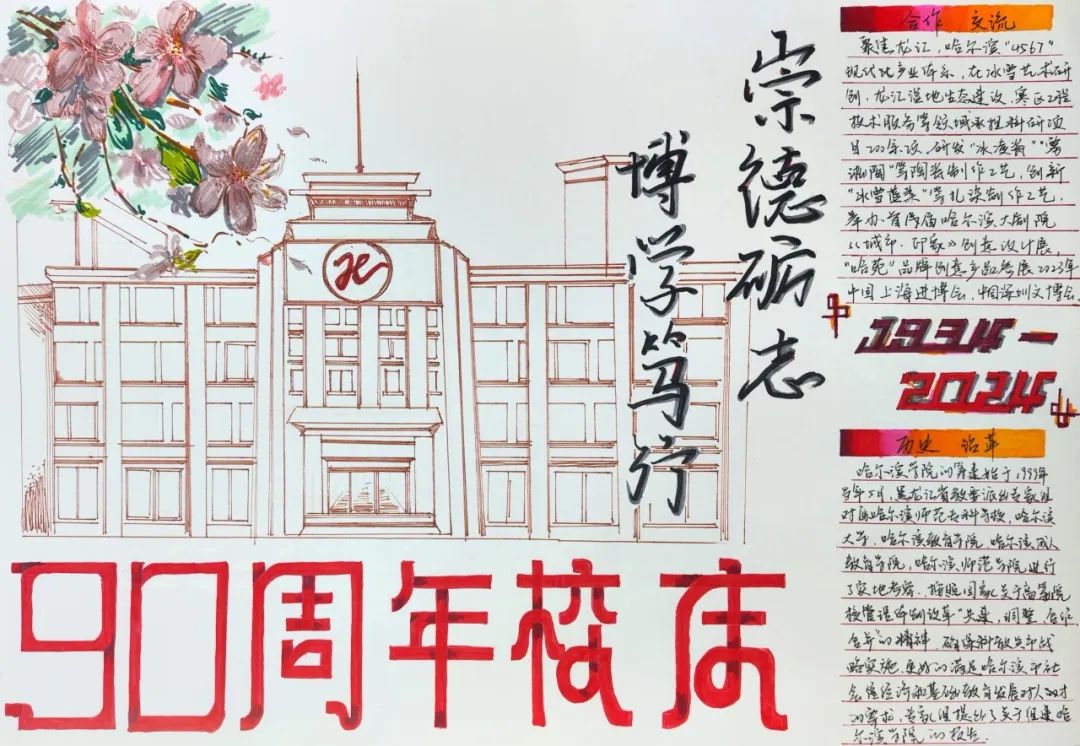 崇德砺志
博学笃行
90周年校庆
合作 交流
聚焦龙江,哈尔滨"4567"
现代化产业体系,在冰雪艺术研
创、龙江湿地生态建设、寒区工程
技术服务等领域承担科研项
目200余项,研发"冰凌釉"
陶"等陶瓷制作工艺,创新
"冰雪蓝染"等扎染制作工艺,
举办首届哈尔滨大剧院
《城市·印象》创意设计展,
"哈苑"品牌创意产品参展2023年
中国上海进博会、中国深圳文博会
1934-
2024
历史 沿革
哈尔滨学院的筹建始于1999年
当年5月,黑龙江省教委派出专家组
对原哈尔滨师范专科学校,哈尔滨
大学、哈尔滨教育学院、哈尔滨成人
教育学院,哈尔滨师范学院进行
了实地考察,按照国家关于高等院
校管理体制改革"共建、调整、合作
合并"的精神,科教兴市战
略实施,更好的满足哈尔滨市社
会经济和基础教育发展对人才
的需求,专家组提出了关于组建哈
尔滨学院的报告